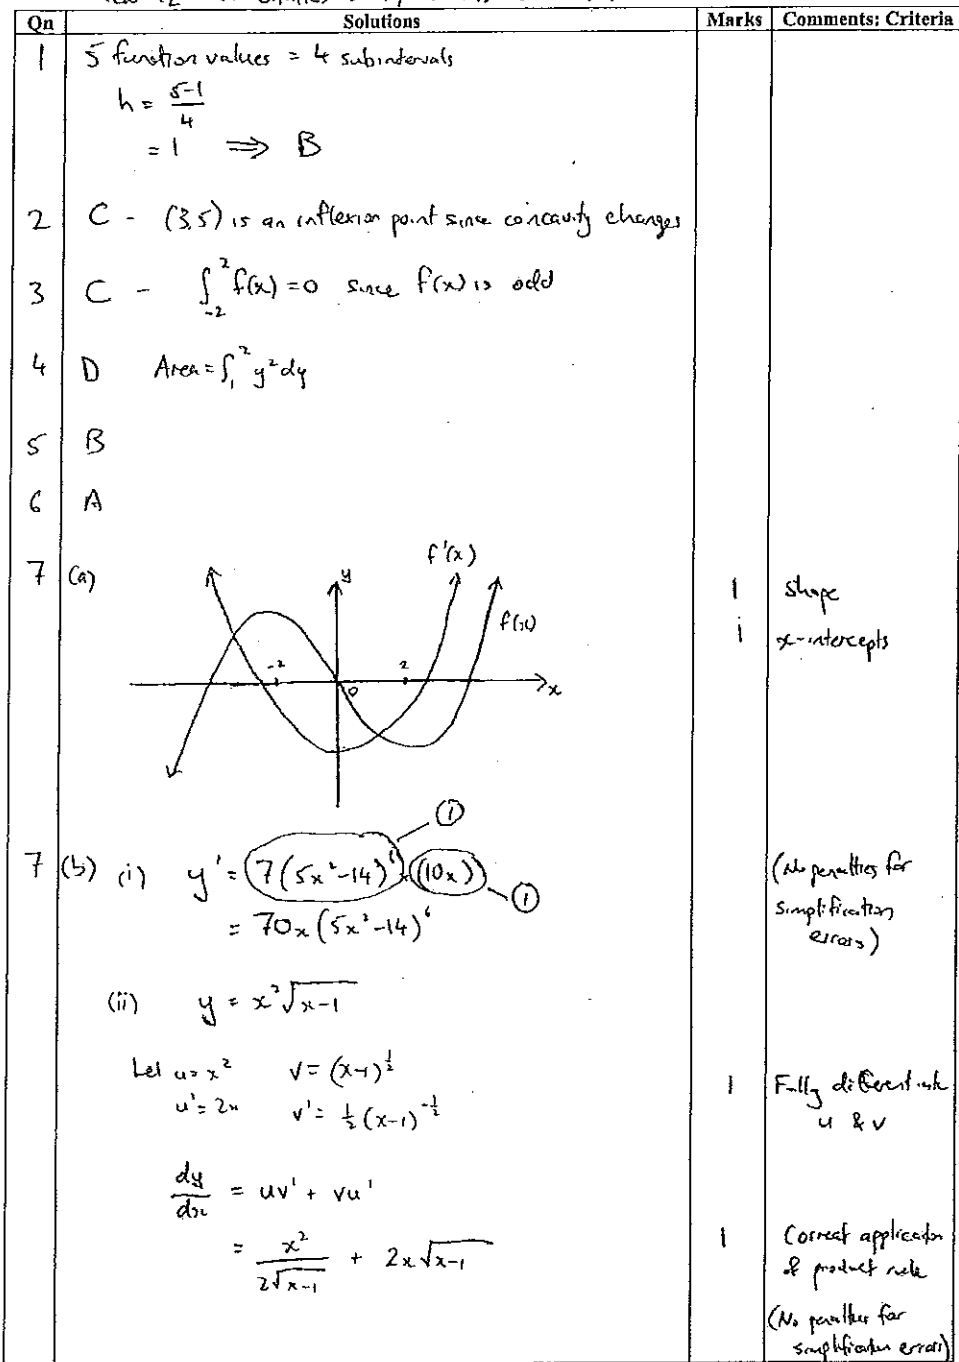 Qn Solutions Marks Comments: Criteria
1 5 function values = 4 subintervals
h = \frac{5-1}{4}
= 1 ⟹ B
2 C - (3,5) is an inflexion point since concavity changes
3 C - ∫_{-2}^{2} f(x) = 0 since f(x) is odd
4 D Area = ∫_1^2 y² dy
5 B
6 A
7 (a) 1 shape
1 x-intercepts
f'(x)
y
f(x)
-2 0 2 x
7 (b) (i) y' = 7(5x²-14)⁶ × (10x) ① ①
= 70x(5x²-14)⁶
(No penalties for
simplification
errors)
(ii) y = x²√(x-1)
Let u = x² v = (x-1)^{1/2}
u' = 2x v' = ½(x-1)^{-1/2}
1 Fully differentiate
u & v
\frac{dy}{dx} = uv' + vu'
= \frac{x²}{2√(x-1)} + 2x√(x-1)
1 Correct application
of product rule
(No penalties for
simplification errors)